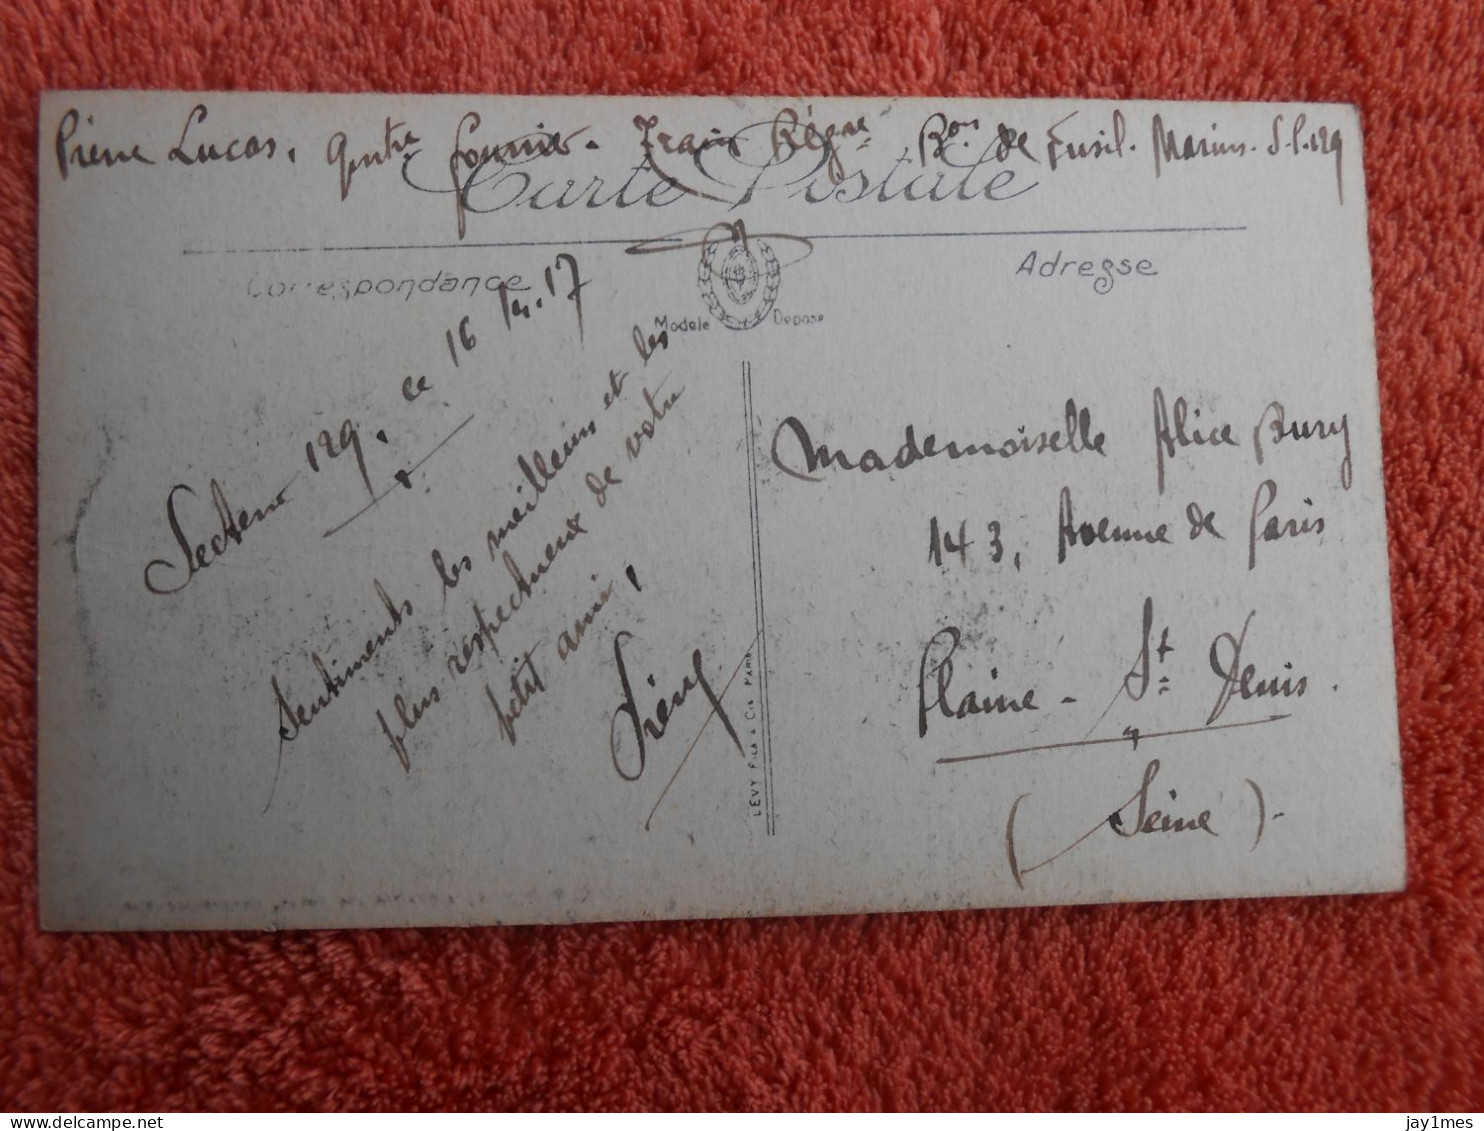 Pierre Lucas. Qrtre fourrier. Train Régre Bon de Fusil. Marins. S.P. 129
Carte Postale
Correspondance
Adresse
Modèle Déposé
Secteur 129, ce 16/4.17
Sentiments les meilleurs et les
plus respectueux de votre
petit ami!
LEVY FILS & Cie PARIS
Mademoiselle Alice Bury
143, Avenue de Paris
Plaine - St Denis.
(Seine).
jay1mes